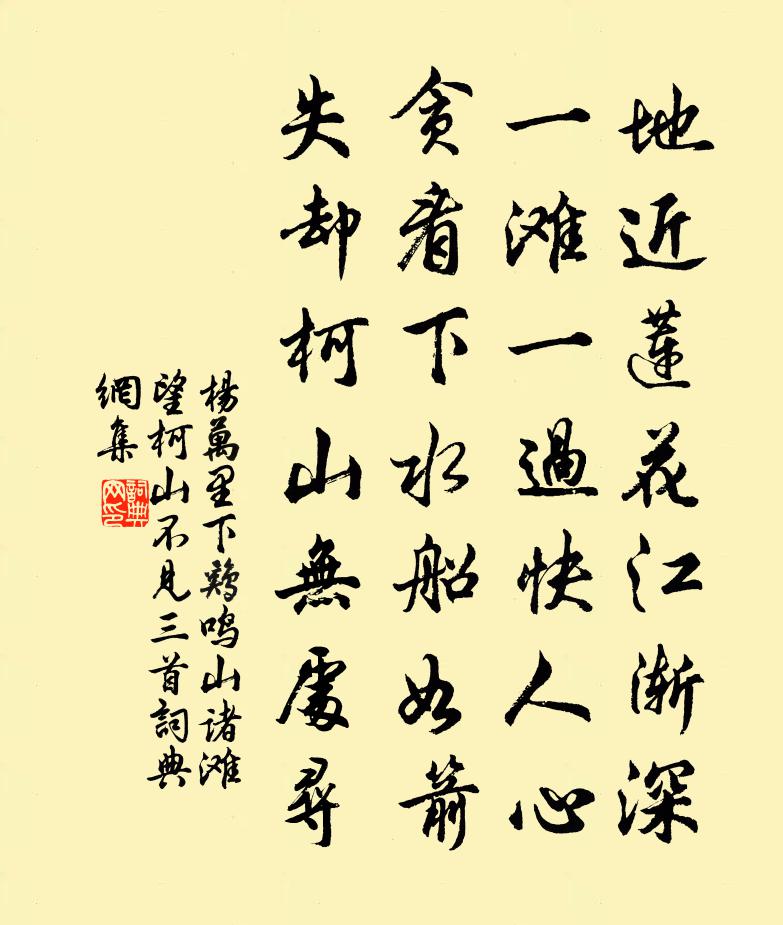 地近蓮花江渐深
一滩一過快人心
贪看下水船如箭
失却柯山無處尋
楊萬里下鷄鸣山诸滩
望柯山不見三首詞典
網集
詞典
网印